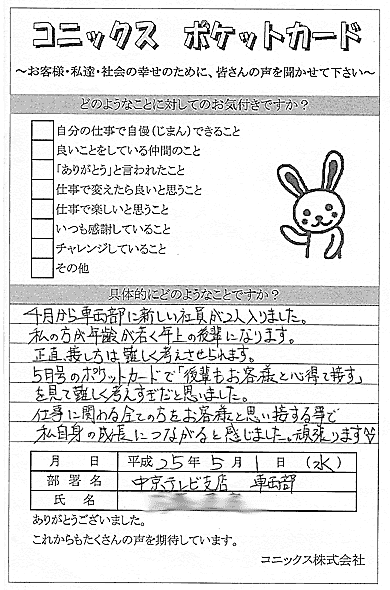 コニックス ポケットカード
～お客様・私達・社会の幸せのために、皆さんの声を聞かせて下さい～
どのようなことに対してのお気付きですか？
自分の仕事で自慢(じまん)できること
良いことをしている仲間のこと
「ありがとう」と言われたこと
仕事で変えたら良いと思うこと
仕事で楽しいと思うこと
いつも感謝していること
チャレンジしていること
その他
具体的にどのようなことですか？
4月から車両部に新しい社員が2人入りました。
私の方が年齢が若く年上の後輩になります。
正直、接し方は難しく考えさせられます。
5月号のポケットカードで「後輩もお客様と心得て接す」
を見て難しく考えすぎだと思いました。
仕事に関わる全ての方をお客様と思い接する事で
私自身の成長につながると感じました。頑張ります
月 日 平成 25年 5月 1日 (水)
部署名 中京テレビ支店 車両部
氏 名
ありがとうございました。
これからもたくさんの声を期待しています。
コニックス株式会社